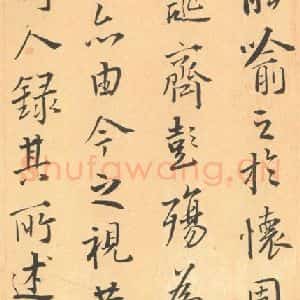 能喻之於懷固
誕齊彭殤為
亦由今之視昔
人録其所述
shufawang.cn